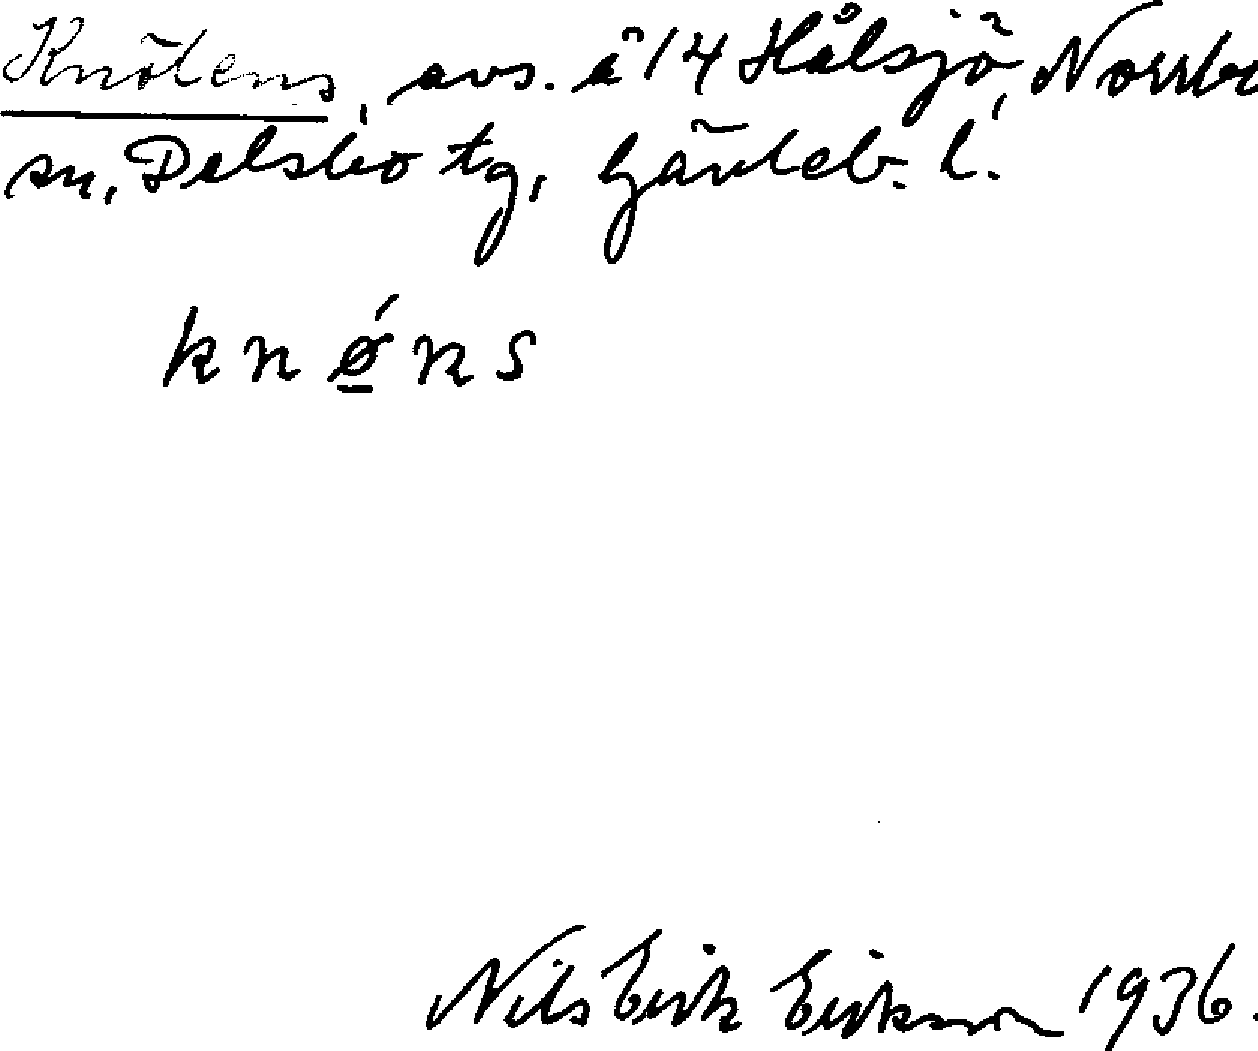 Knölens, avs. å 14 Hålsjö, Norrbo
sn, Delsbo tg, Gävleb. l.
knǿ̲ns
Nils Erik Eriksson 1936.